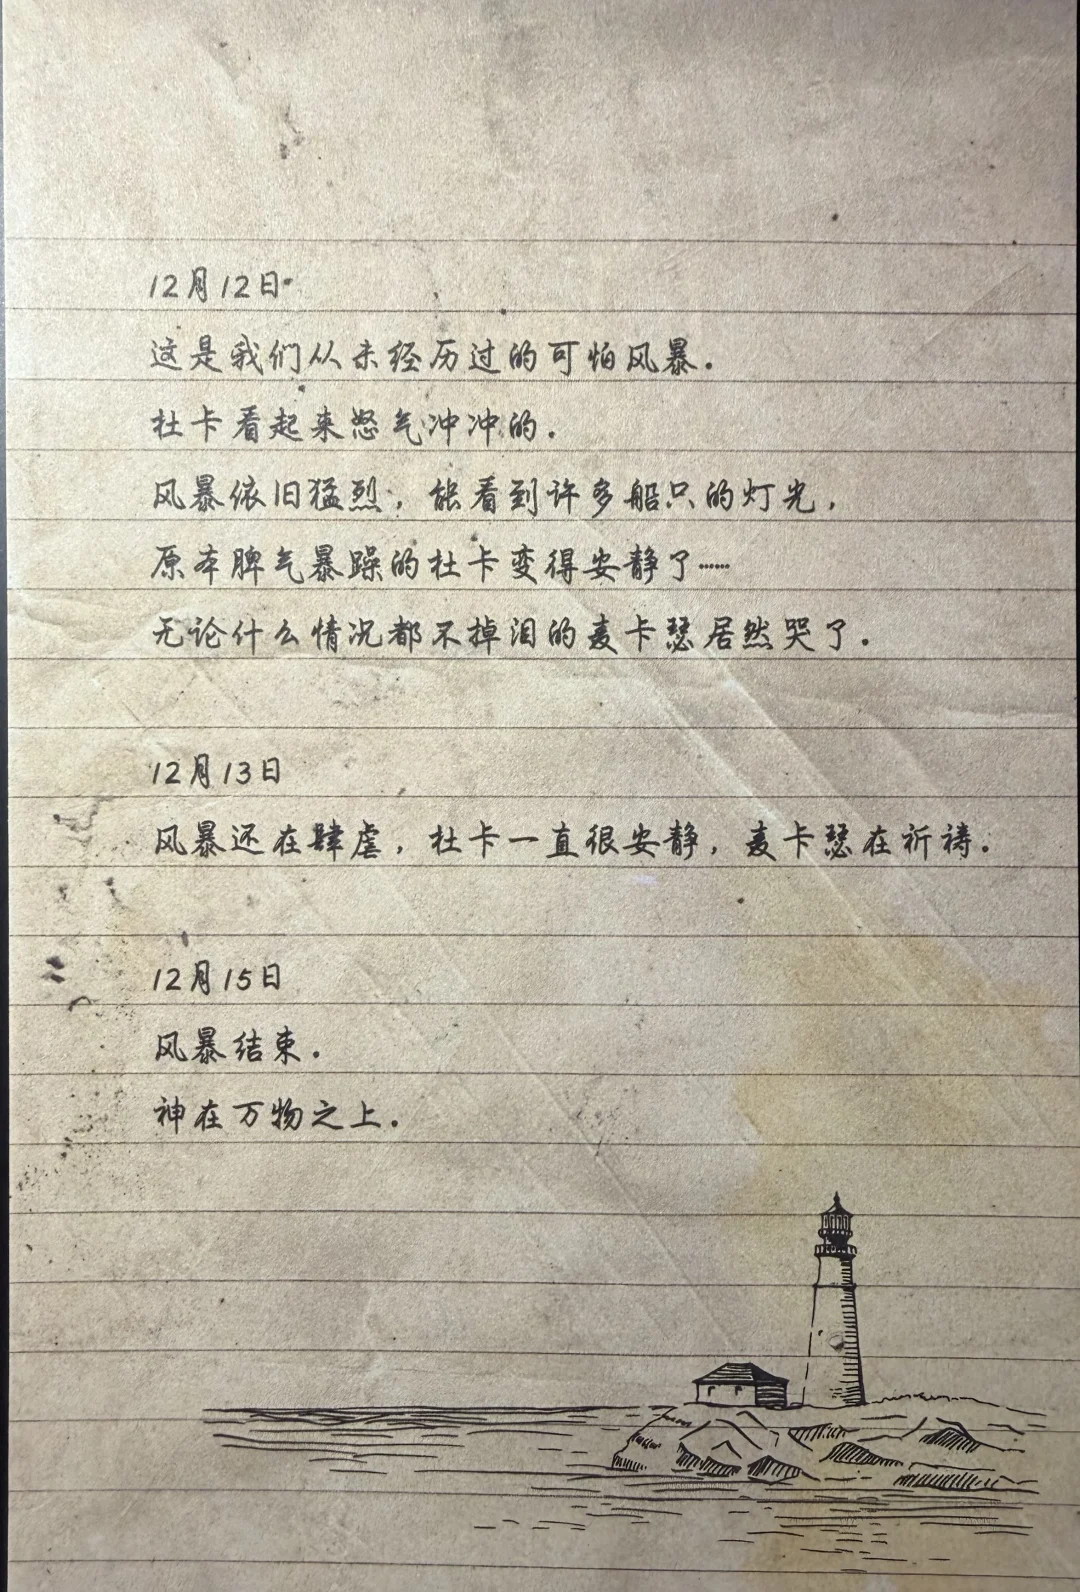 12月12日
这是我们从未经历过的可怕风暴.
杜卡看起来怒气冲冲的.
风暴依旧猛烈,能看到许多船只的灯光,
原本脾气暴躁的杜卡变得安静了……
无论什么情况都不掉泪的麦卡瑟居然哭了.
12月13日
风暴还在肆虐,杜卡一直很安静,麦卡瑟在祈祷.
12月15日
风暴结束.
神在万物之上.